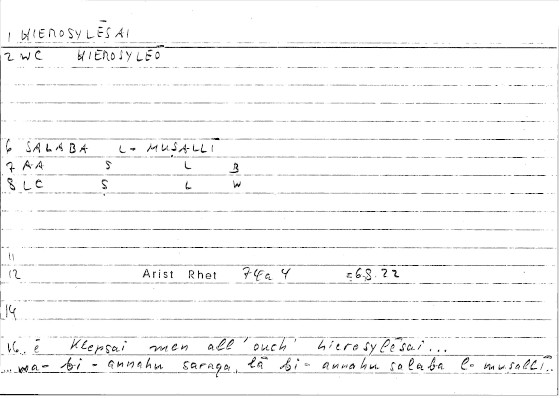 1 HIEROSYLĒSAI
2 WC HIEROSYLEŌ
6 SALABA L-MUṢALLĪ
7 AA S L B
8 LC Ṣ L W
11
12 Arist Rhet 74a4 =68.22
14
16 ē klepsai men all' ouch' hierosylēsai...
...wa-bi-annahu saraqa, lā bi-annahu salaba l-muṣallī..